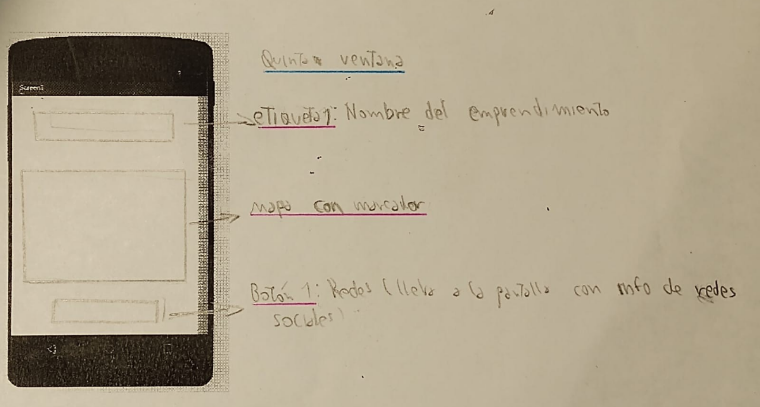 Quinta ventana
Screen1
etiqueta1: Nombre del emprendimiento
mapa con marcador
Botón 1: Redes (lleva a la pantalla con info de redes
sociales)